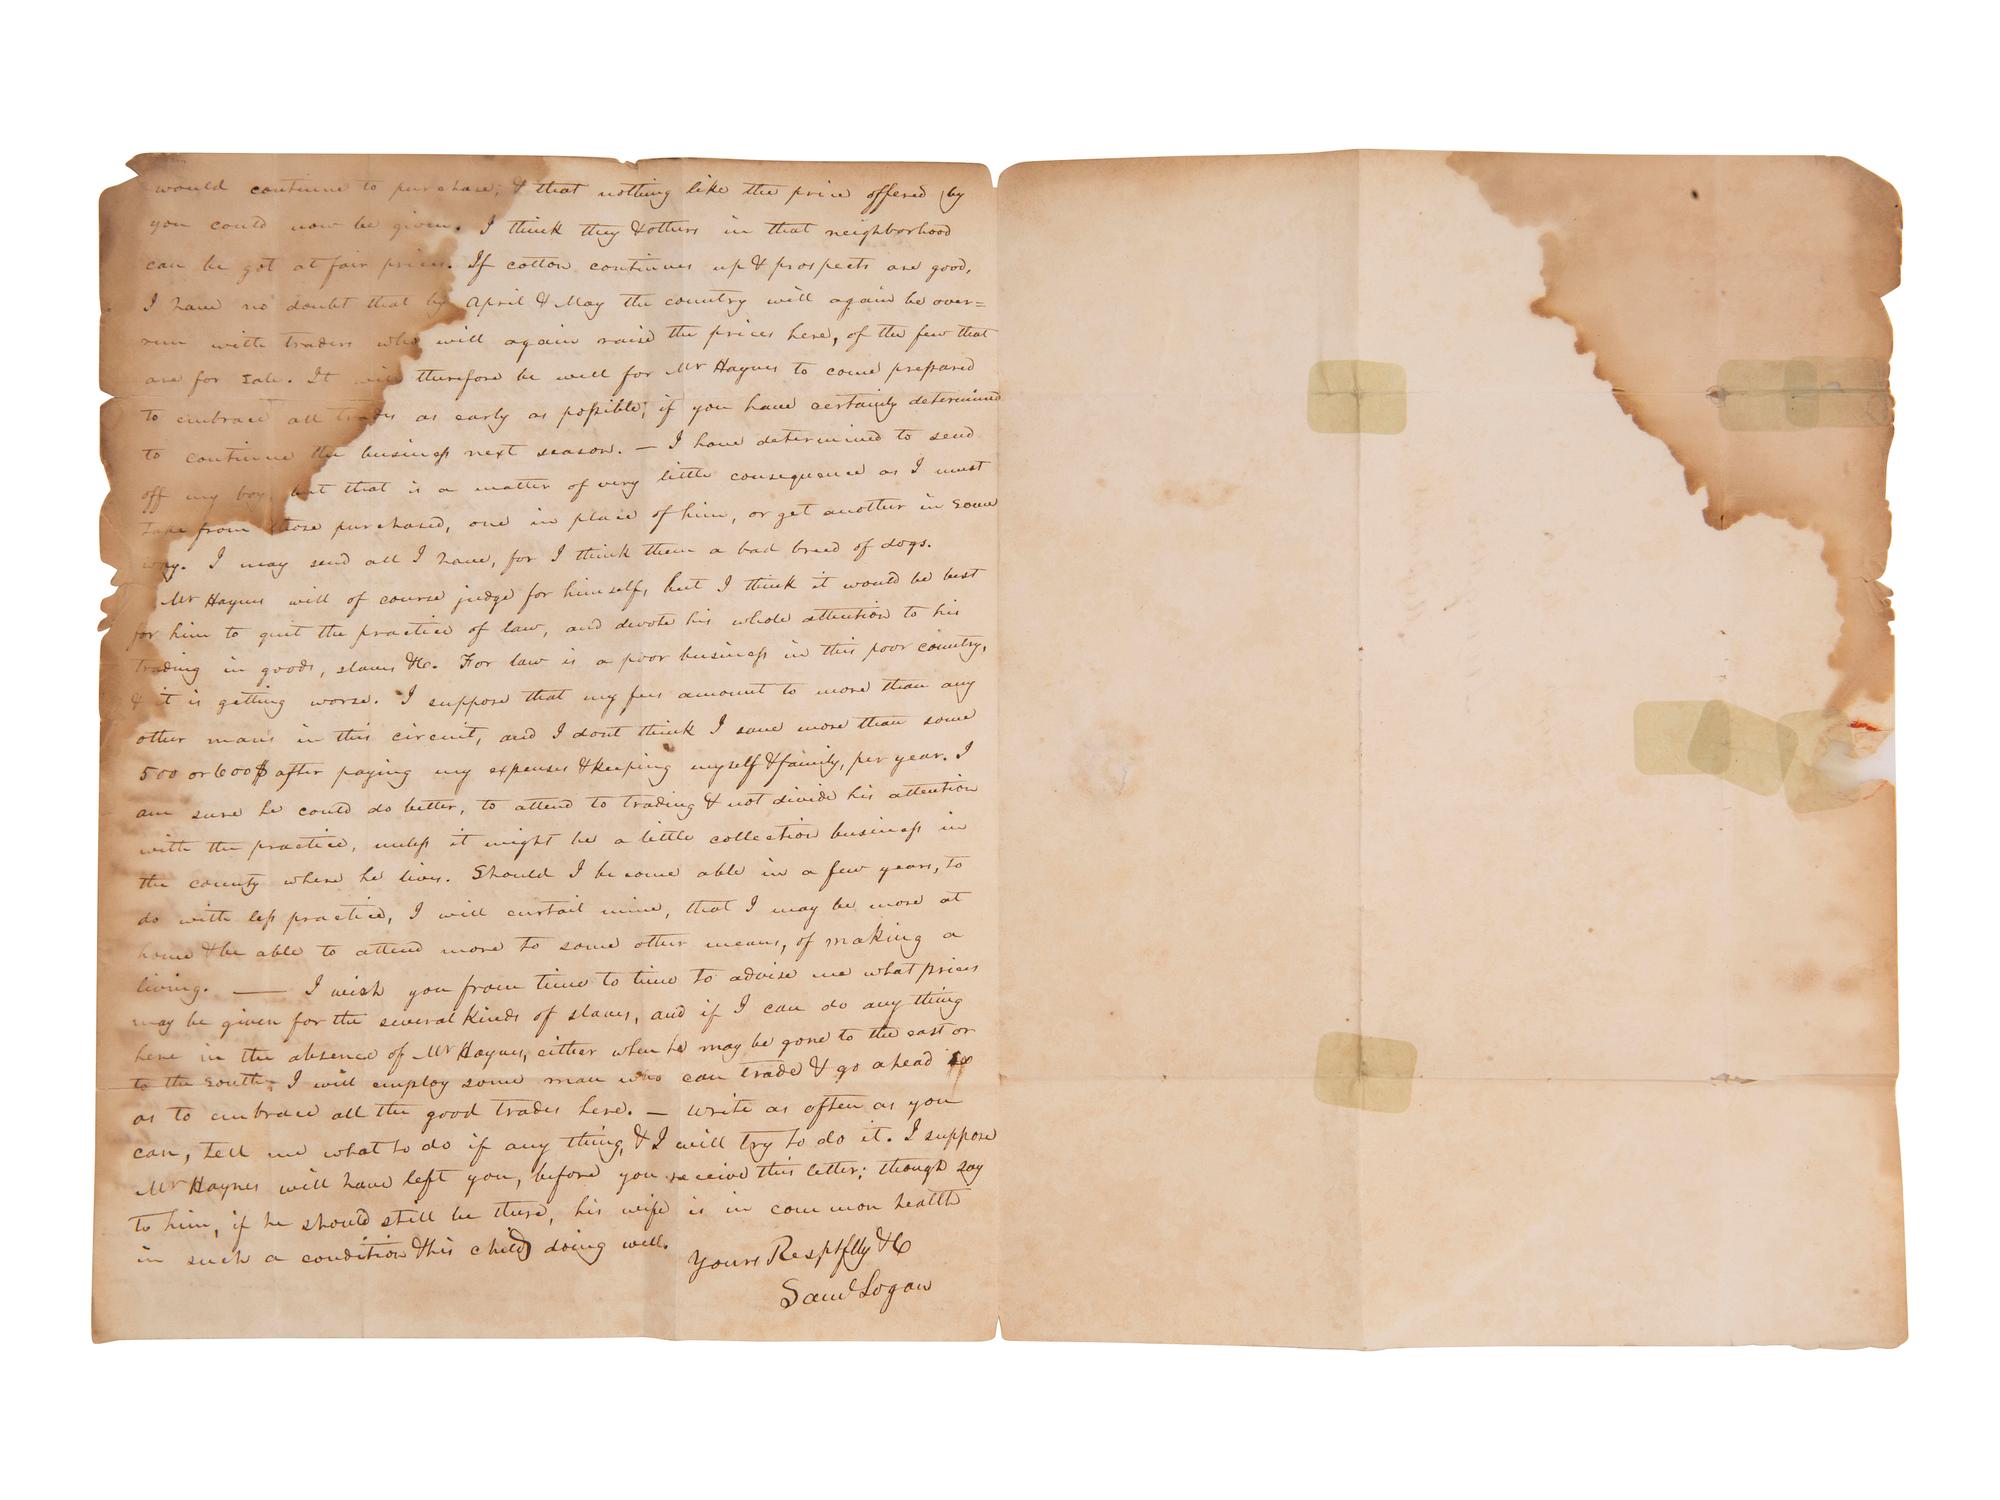 would continue to purchase; & that nothing like the price offered by
you could now be given. I think they & others in that neighborhood
can be got at fair prices. If cotton continues up & prospects are good,
I have no doubt that by April & May the country will again be over=
run with traders who will again raise the prices here, of the few that
are for sale. It will therefore be well for Mr Haynes to come prepared
to embrace all trades as early as possible, if you have certainly determined
to continue the business next season. — I have determined to send
off my boy, but that is a matter of very little consequence as I must
take from those purchased, one in place of him, or get another in some
way. I may send all I have, for I think them a bad breed of dogs.
Mr Haynes will of course judge for himself, but I think it would be best
for him to quit the practice of law, and devote his whole attention to his
trading in goods, slaves &c. For law is a poor business in this poor country,
& it is getting worse. I suppose that my fees amount to more than any
other mans in this circuit, and I dont think I save more than some
500 or 600$ after paying my expenses & keeping myself & family, per year. I
am sure he could do better, to attend to trading & not divide his attention
with the practice, unless it might be a little collection business in
the county where he lives. Should I become able in a few years, to
do with less practice, I will curtail mine, that I may be more at
home & be able to attend more to some other means, of making a
living. — I wish you from time to time to advise me what prices
may be given for the several kinds of slaves, and if I can do any thing
here in the absence of Mr Haynes, either when he may be gone to the east or
to the south, I will employ some man who can trade & go ahead so
as to embrace all the good trades here. — Write as often as you
can, tell me what to do if any thing, & I will try to do it. I suppose
Mr Haynes will have left you, before you receive this letter; though say
to him, if he should still be there, his wife is in common health
in such a condition & his child doing well.
Yours Respctflly &c
Saml Logan